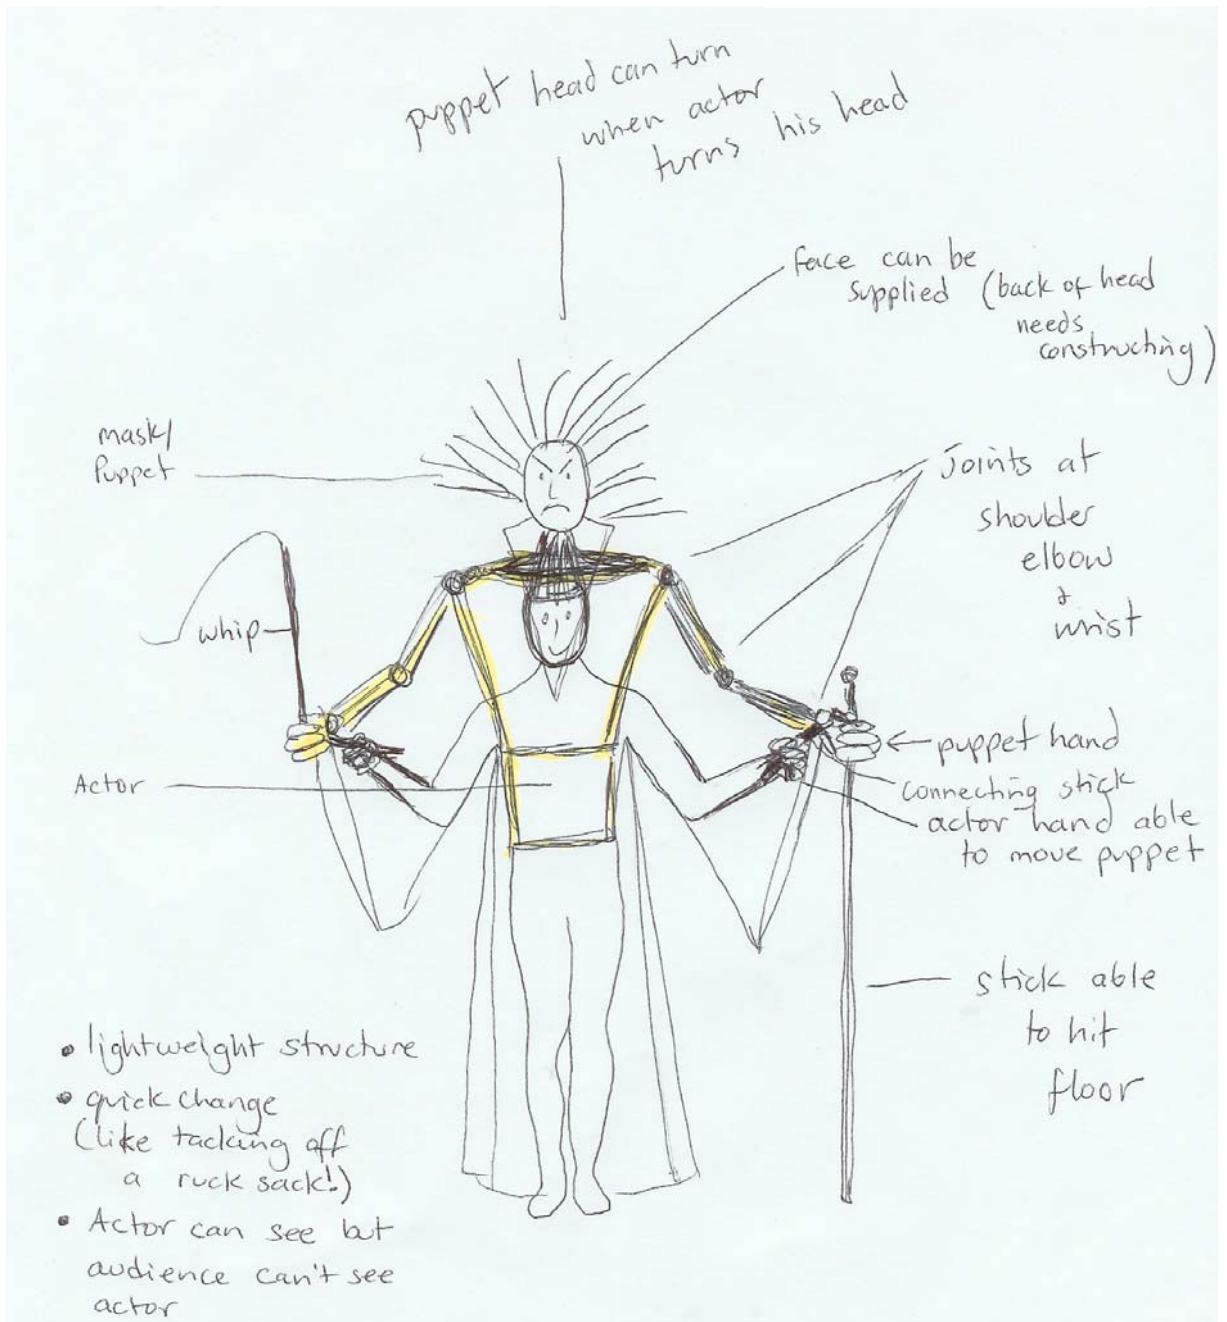 puppet head can turn
when actor
turns his head
face can be
supplied (back of head
needs
constructing)
mask/
Puppet
Joints at
shoulder
elbow
&
wrist
whip
puppet hand
connecting stick
actor hand able
to move puppet
Actor
stick able
to hit
floor
• lightweight structure
• quick change
(like tacking off
a ruck sack!)
• Actor can see but
audience can't see
actor